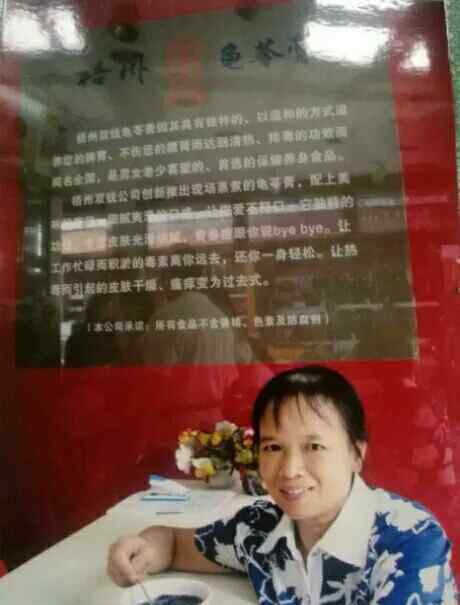 梧州 龟苓膏
梧州双钱龟苓膏因其具有独特的、以温和的方式滋
养您的脾胃、不伤您的脾胃而达到清热、排毒的功效而
闻名全国，是男女老少喜爱的、首选的保健养身食品。
梧州双钱公司创新推出现场蒸煮的龟苓膏，配上美
口感，让您爱不释口。它独特的
功 皮肤光滑细腻，青春痘跟你说bye bye。让
工作忙碌而积淤的毒素离你远去，还你一身轻松。让热
毒而引起的皮肤干燥、瘙痒变为过去式。
（本公司承诺：所有食品不含香精、色素及防腐剂）